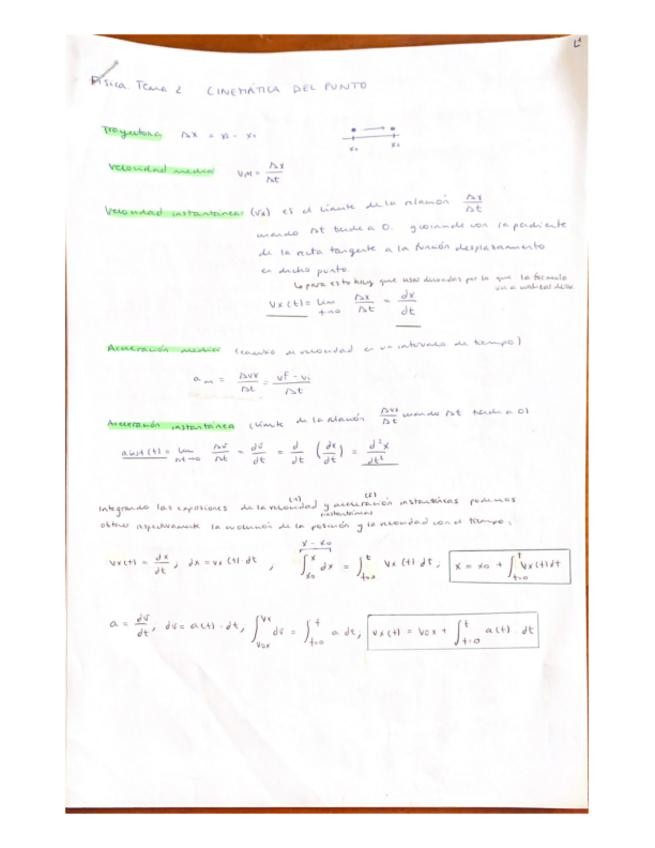 L1
Física. Tema 2 CINEMÁTICA DEL PUNTO
Trayectoria Δx = x1 - x0
x0 x1
Velocidad media VM = Δx/Δt
Velocidad instantánea (Vx) es el límite de la relación Δx/Δt
cuando Δt tiende a 0. y coincide con la pendiente
de la recta tangente a la función desplazamiento
en dicho punto.
↳ para esto hay que usar derivadas por lo que la fórmula
Vx(t) = lim t→0 Δx/Δt = dx/dt
Aceleración media (cambio de velocidad en un intervalo de tiempo)
am = Δvx/Δt = vf - vi/Δt
Aceleración instantánea (límite de la relación Δvx/Δt cuando Δt tiende a 0)
ainst(t) = lim Δt→0 Δv/Δt = dv/dt = d/dt (dx/dt) = d²x/dt²
Integrando las expresiones de la velocidad (1) y aceleración (2) instantáneas podemos
instantáneas
obtener respectivamente la evolución de la posición y la velocidad con el tiempo:
x - x0
Vx(t) = dx/dt ; dx = vx(t)·dt , ∫x0^x dx = ∫t=0^t Vx(t) dt ; x = x0 + ∫t=0^t Vx(t)dt
a = dv/dt ; dv = a(t)·dt, ∫v0x^vx dv = ∫t=0^t a dt ; Vx(t) = V0x + ∫t=0^t a(t)·dt